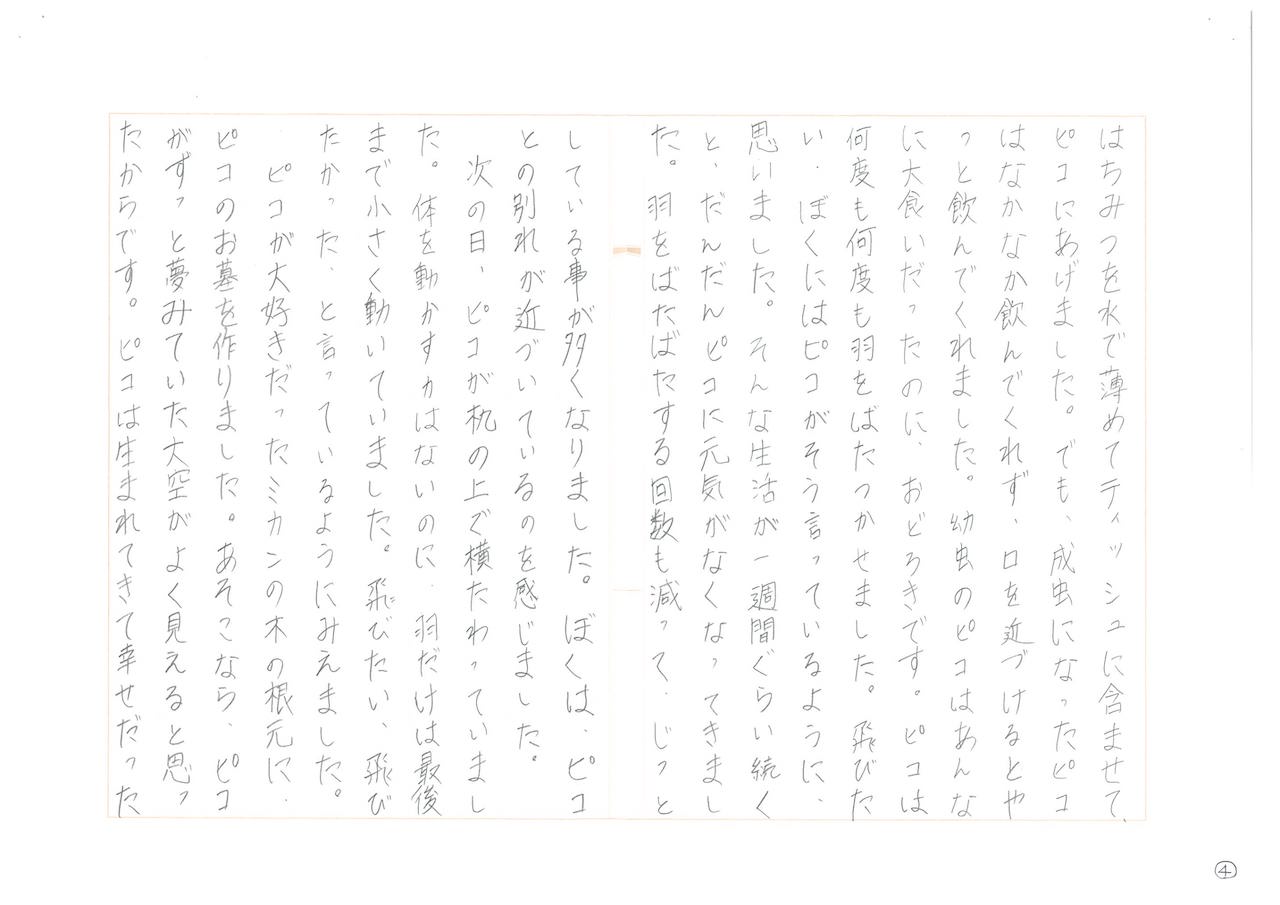 はちみつを水で薄めてティッシュに含ませて、
ピコにあげました。でも、成虫になったピコ
はなかなか飲んでくれず、口を近づけるとや
っと飲んでくれました。幼虫のピコはあんな
に大食いだったのに、おどろきです。ピコは
何度も何度も羽をばたつかせました。飛びた
い、ぼくにはピコがそう言っているように、
思いました。そんな生活が一週間ぐらい続く
と、だんだんピコに元気がなくなってきまし
た。羽をばたばたする回数も減って、じっと
している事が多くなりました。ぼくは、ピコ
との別れが近づいているのを感じました。
次の日、ピコが机の上で横たわっていまし
た。体を動かす力はないのに、羽だけは最後
まで小さく動いていました。飛びたい、飛び
たかった、と言っているようにみえました。
ピコが大好きだったミカンの木の根元に、
ピコのお墓を作りました。あそこなら、ピコ
がずっと夢みていた大空がよく見えると思っ
たからです。ピコは生まれてきて幸せだった
④